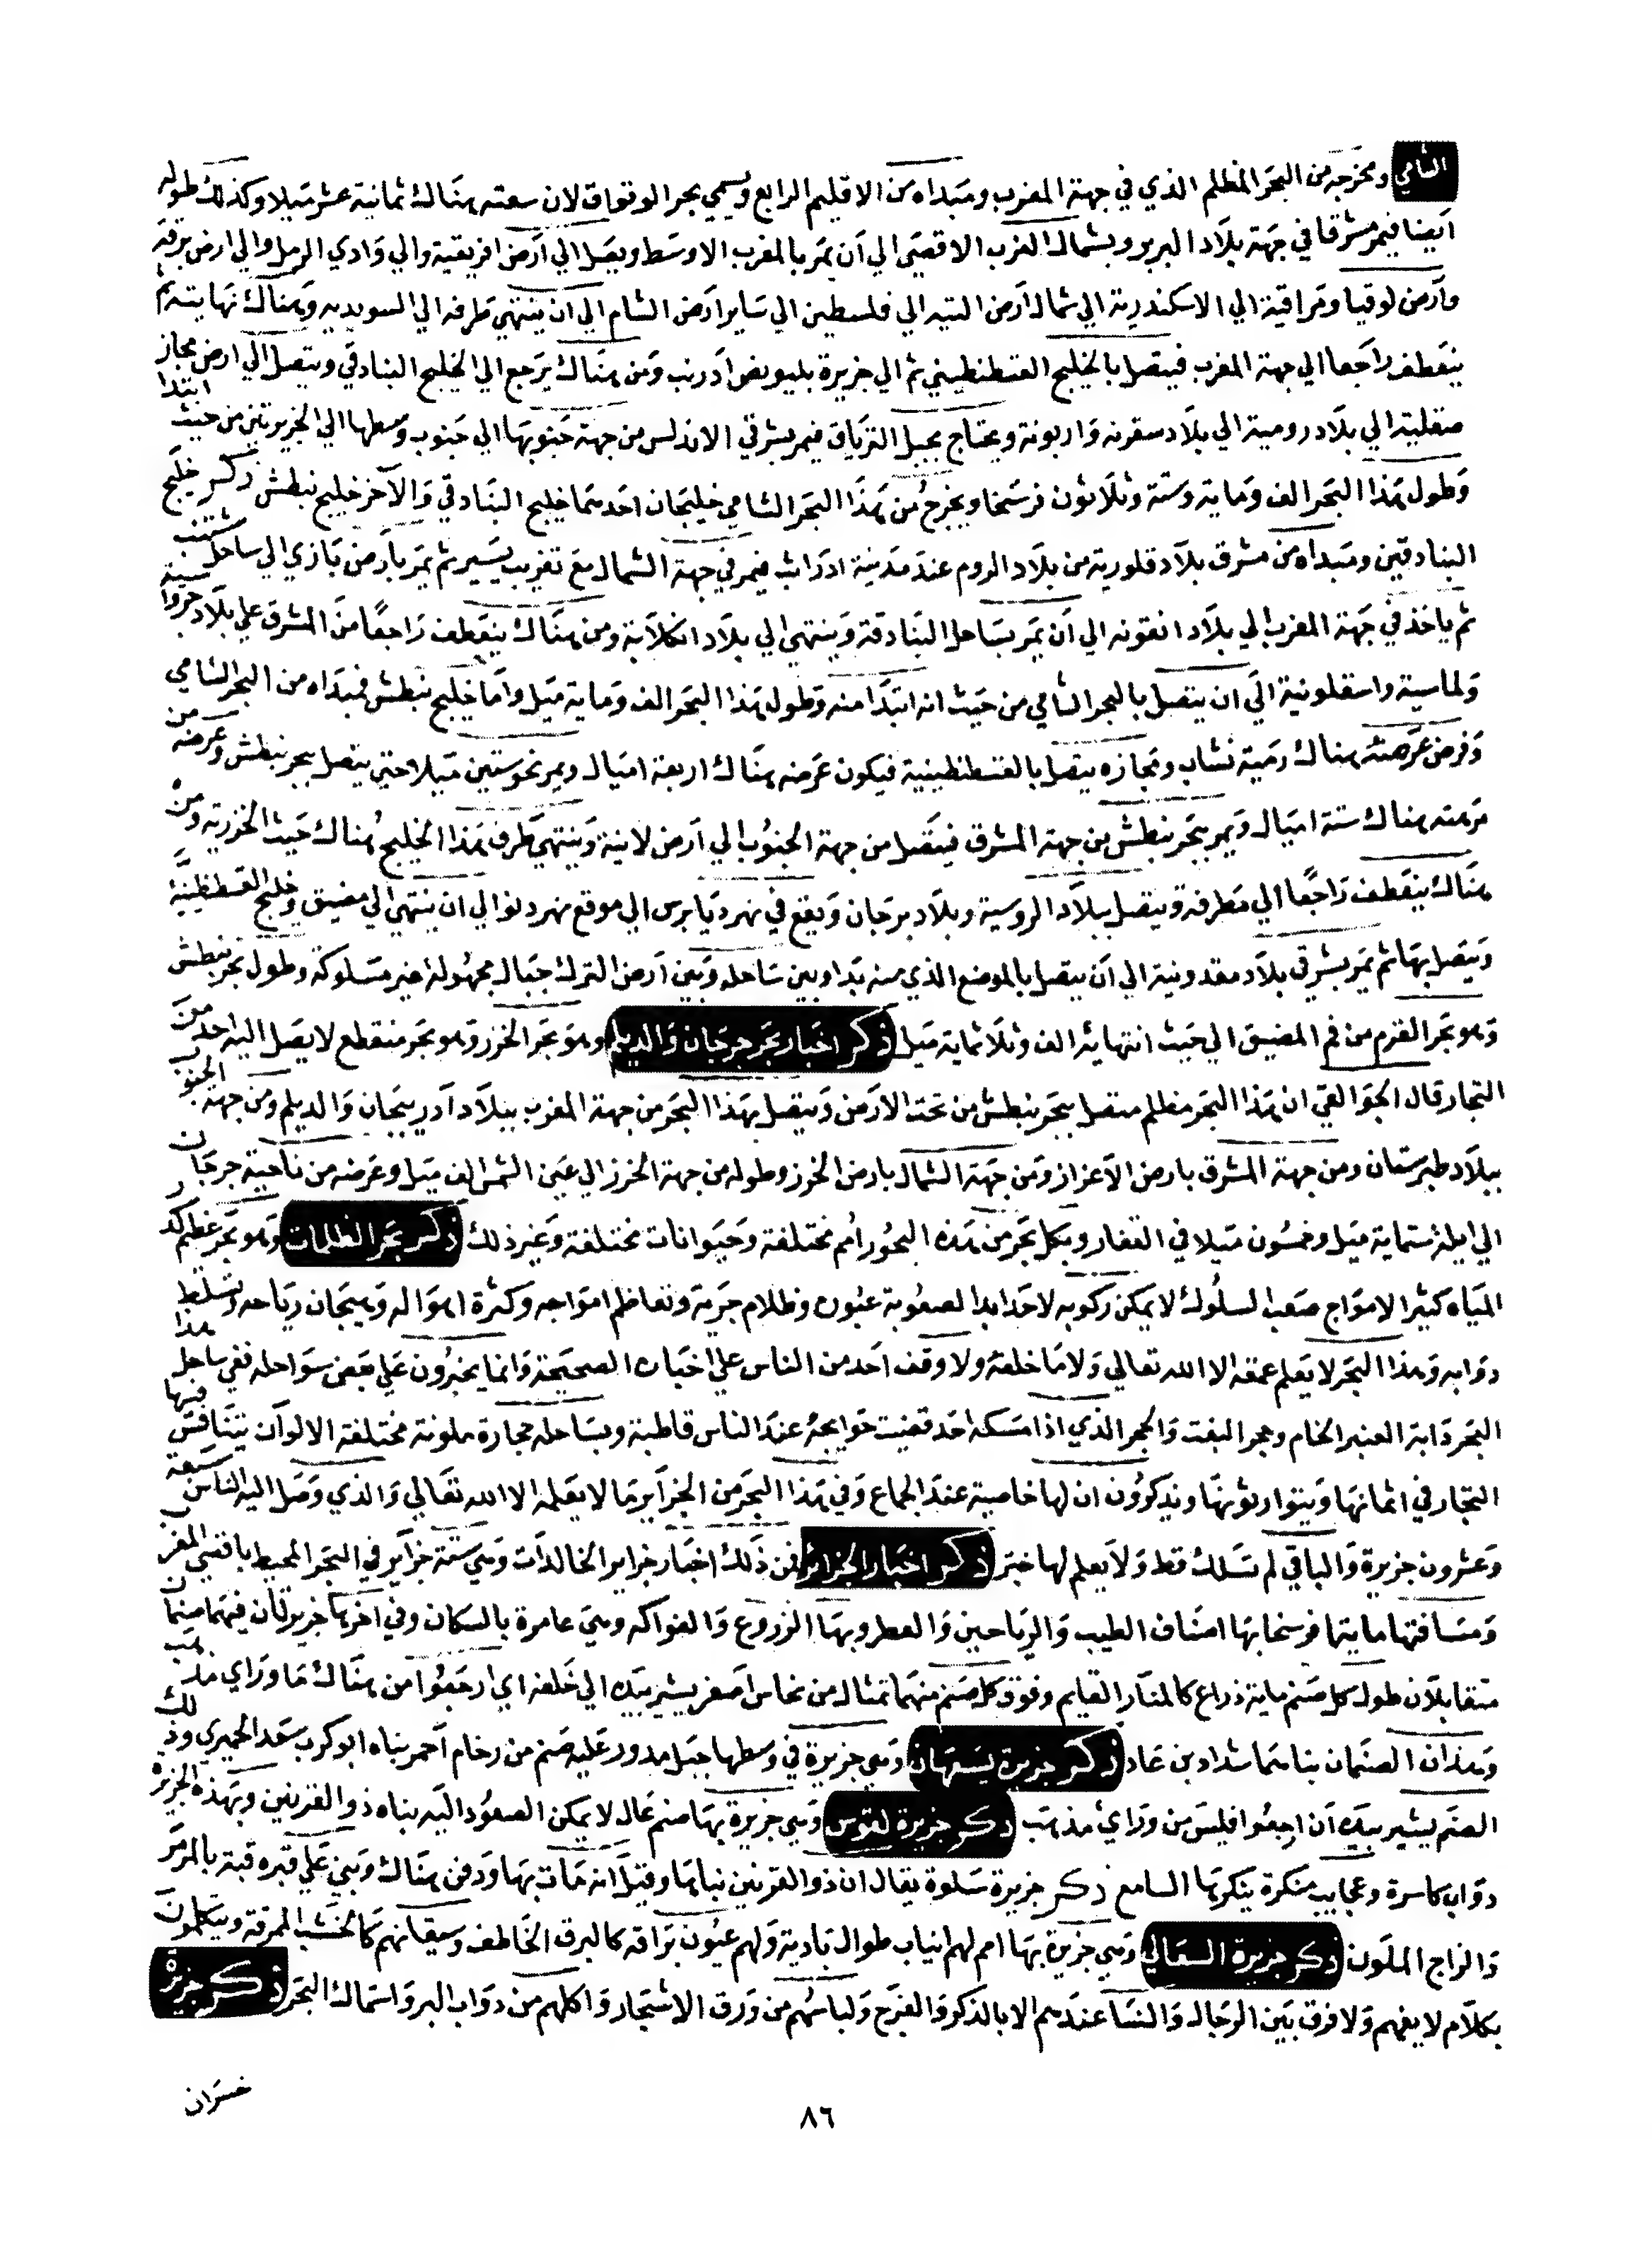 الشامي ومخرجه من البحر المظلم الذي في جهة المغرب ومبداه من الاقليم الرابع ويسمي بحر الوقواق لان سعته هناك ثمانية عشر ميلا وكذلك طوله
ايضا فيمر مشرقا في جهة بلاد البربر وبشمال الغرب الاقصى الي ان يمر بالمغرب الاوسط ويصل الي أرض افريقية والي وادي الرمل والي ارض برقة
وأرض لوقيا ومراقية الي الاسكندرية الي شمال ارض التيه الي فلسطين الي ساير ارض الشام الي ان ينتهي طرفه الي السويديه وهناك نهايته ثم
ينعطف راجعا الي جهة المغرب فيتصل بالخليج القسطنطيني ثم الي جزيرة بلبونس ادرنت ومن هناك يرجع الي الخليج البنادقي ويتصل الي ارض مجاز
صقلية الي بلاد رومية الي بلاد سقرنه واربونة ويحتاج بجبل الترياق فيمر بشرقي الاندلس من جهة جنوبها الي جنوب وسطها الي الجزيرتين من حيث ابتدا
وطول هذا البحر الف وماية وستة وثلاثون فرسخا ويخرج من هذا البحر الشامي خليجان احدهما خليج البنادقي والآخر خليج نبطش ذكر خليج
البنادقين ومبداه من مشرق بلاد قلورية من بلاد الروم عند مدينة ادرانت فيمر في جهة الشمال مع تغريب يسير ثم يمر بأرض بازي الي ساحل شنت
ثم ياخذ في جهة المغرب الي بلاد انقونه الي ان يمر بساحل البنادقة وينتهي الي بلاد انكلاية ومن هناك ينعطف راجعا من المشرق علي بلاد جرواسية
ولماسية واسقلونية الي ان يتصل بالبحر الشامي من حيث انه ابتدا منه وطول هذا البحر الف وماية ميل واما خليج نبطش فمبداه من البحر الشامي
وفرض عرضه هناك رمية نشاب ومجازه يتصل بالقسطنطينية فيكون عرضه هناك اربعة اميال ويمر نحو ستين ميلا حتي يتصل ببحر نبطش وعرضه من
مزمته هناك ستة اميال ويمر بحر نبطش من جهة المشرق فيتصل من جهة الجنوب الي ارض لانية وينتهي طرف هذا الخليج هناك حيث الخزرية ومن
هناك ينعطف راجعا الي مطرفه ويتصل ببلاد الروسية وبلاد برجان ويقع في نهر ديابرس الي موقع نهر دنو الي ان ينتهي الي مضيق وخليج القسطنطينية
ويتصل بها ثم يمر بشرقي بلاد مقدونية الي ان يتصل بالموضع الذي منه بدا وبين ساحله وبين ارض الترك جبال مجهولة غير مسلوكة وطول بحر نبطش
وهو بحر القرم من فم المضيق الي حيث انتهايه الف وثلاثماية ميل ذكر اخبار بحر جرجان والديلم وهو بحر الخزر وهو بحر منقطع لا يصل اليه احد من
التجار قال الجواليقي ان هذا البحر مظلم متصل ببحر نبطش من تحت الارض ويتصل بهذا البحر من جهة المغرب ببلاد آدربيجان والديلم ومن جهة الجنوب
ببلاد طبرستان ومن جهة المشرق بارض الاعزاز ومن جهة الشمال بارض الخزر وطوله من جهة الخزر الي عين الشمس الف ميل وعرضه من ناحية جرجان
الي ايله ستماية ميل وخمسون ميلا في القفار وبكل بحر من هذه البحور امم مختلفة وحيوانات مختلفة وغير ذلك ذكر بحر الظلمات وهو بحر عظيم كدر
المياه كثير الامواج صعب السلوك لا يمكن ركوبه لاحد ابدا لصعوبة عبوره وظلام جرمه وتعاظم امواجه وكثرة اهواله وهيجان رياحه وتسلط
دوابه وهذا البحر لا يعلم عمقه الا الله تعالي ولا ما خلفه ولا وقف احد من الناس علي اخباره الصحيحة وانما يخبرون علي بعض سواحله ففي ساحل هذا
البحر دابة العنبر الخام وحجر البهت والحجر الذي اذا مسكه احد قضيت حوايجه عند الناس قاطبة وبساحله حجارة ملونة مختلفة الالوان يتنافس فيها
التجار في اثمانها ويتوارثونها ويذكرون ان لها خاصية عند الجماع وفي هذا البحر من الجزاير ما لا يعلمه الا الله تعالي والذي وصل اليه الناس سبعة
وعشرون جزيرة والباقي لم تسلك قط ولا يعلم لها خبر ذكر اخبار الجزائر فمن ذلك اخبار جزاير الخالدات وهي ستة جزاير في البحر المحيط باقصي المغرب
ومسافتها مايتا فرسخا بها اصناف الطيب والرياحين والعطر وبها الزروع والفواكه وهي عامرة بالسكان وفي اخرها جزيرتان فيهما صنمان
متقابلان طول كل صنم ماية ذراع كالمنار القايم وفوق كل صنم منهما تمثال من نحاس اصفر يشير بيده الي خلفه اي ارجعوا من هناك ما وراي مذهب
وهذان الصنمان بناهما شداد بن عاد ذكر جزيرة يسهان وهي جزيرة في وسطها جبل مدور عليه صنم من رخام أحمر بناه ابو كرب سعد الحميري وذلك
الصنم يشير بيده أن ارجعوا فليس من وراي مذهب ذكر جزيرة لغوس وهي جزيرة بها صنم عال لا يمكن الصعود اليه بناه ذو القرنين وبهذه الجزيرة
دواب كاسرة وعجايب منكرة ينكرها السامع ذكر جزيرة سلوة يقال ان ذو القرنين بناها وقيل انه مات بها ودفن هناك وبني علي قبره قبة بالمرمر
والزاج الملون ذكر جزيرة السعالي وهي جزيرة بها امم لهم انياب طوال بادية ولهم عيون براقه كالبرق الخاطف وسيقانهم كالخشب المحرقة ويتكلمون
بكلام لا يفهم ولا فرق بين الرجال والنسا عندهم الا بالذكر والفرج ولباسهم من ورق الاشجار واكلهم من دواب البر واسماك البحر ذكر جزيرة
خسران
٨٦